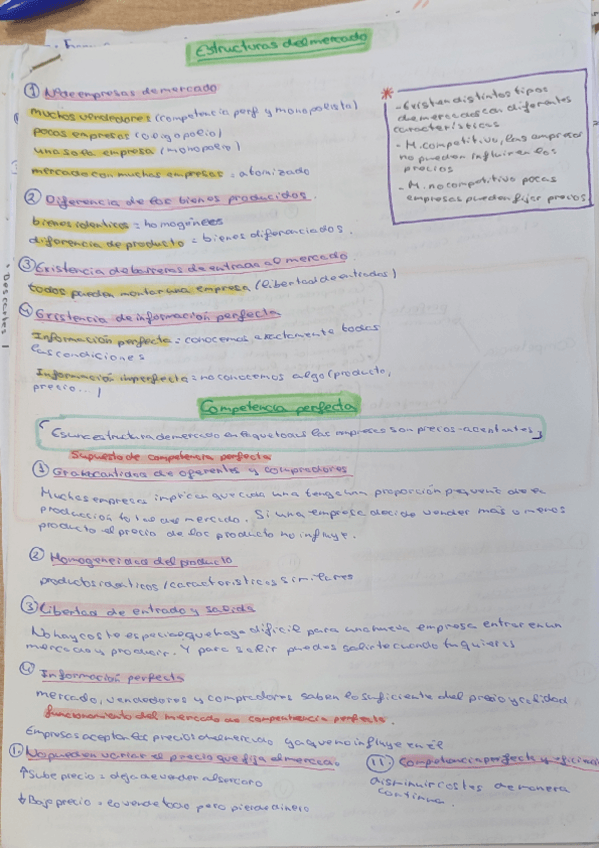 Estructuras del mercado
① Nº de empresas de mercado
muchos vendedores (competencia perf y monopolista)
pocas empresas (oligopolio)
una sola empresa (monopolio)
mercado con muchas empresas = atomizado
* - Existen distintos tipos
de mercados con diferentes
características
- M. competitivo, las empresas
no pueden influir en los
precios
- M. no competitivo pocas
empresas pueden fijar precios
② Diferencia de los bienes producidos.
bienes identicos = homogéneos
diferencia de producto = bienes diferenciados.
③ Existencia de barreras de entrada al mercado
todos pueden montar una empresa (libertad de entradas)
④ Existencia de información perfecta
Información perfecta = conocemos exactamente todas
las condiciones
Información imperfecta = no conocemos algo (producto,
precio...)
Competencia perfecta
Es una estructura de mercado en la que todas las empresas son precio-aceptantes
Supuesto de competencia perfecta
① Gran cantidad de oferentes y compradores
Muchas empresas implican que cada una tenga una proporción pequeña de la
producción total del mercado. Si una empresa decide vender más o menos
producto el precio de los producto no influye.
② Homogeneidad del producto
productos identicos / características similares
③ Libertad de entrada y salida
No hay coste especial que haga dificil para una nueva empresa entrar en un
mercado y producir. Y para salir puedes salirte cuando tu quieras
④ Información perfecta
mercado, vendedores y compradores saben lo suficiente del precio y calidad
funcionamiento del mercado de competencia perfecta.
Empresas aceptan los precios del mercado ya que no influye en él
I. No pueden variar el precio que fija el mercado
↑ Sube precio = deja de vender al ser caro
↓ Baja precio = lo vende todo pero pierde dinero
II. Competencia perfecta y eficiencia
disminuir costes de manera
continua.
Descartes